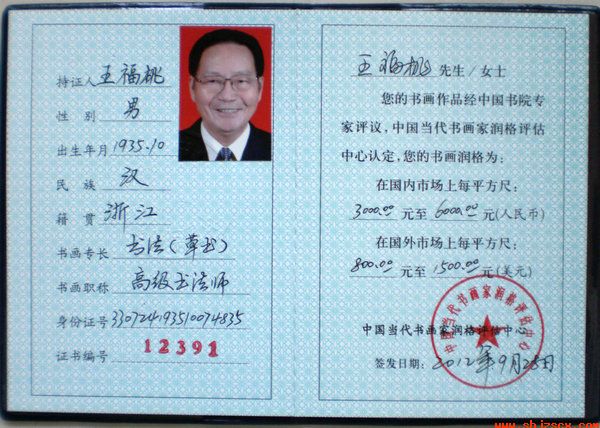 持证人 王福桃
性 别 男
出生年月 1935.10
民 族 汉
籍 贯 浙江
书画专长 书法(草书)
书画职称 高级书法师
身份证号 330724193510074835
证书编号 12391
王福桃 先生/女士
您的书画作品经中国书院专
家评议,中国当代书画家润格评估
中心认定,您的书画润格为:
在国内市场上每平方尺:
3000.00 元至 6000.00 元(人民币)
在国外市场上每平方尺:
800.00 元至 1500.00 元(美元)
中国当代书画家润格评估中心
签发日期: 2012年9月28日
中国当代书画家润格评估中心
www.shjzscx.com